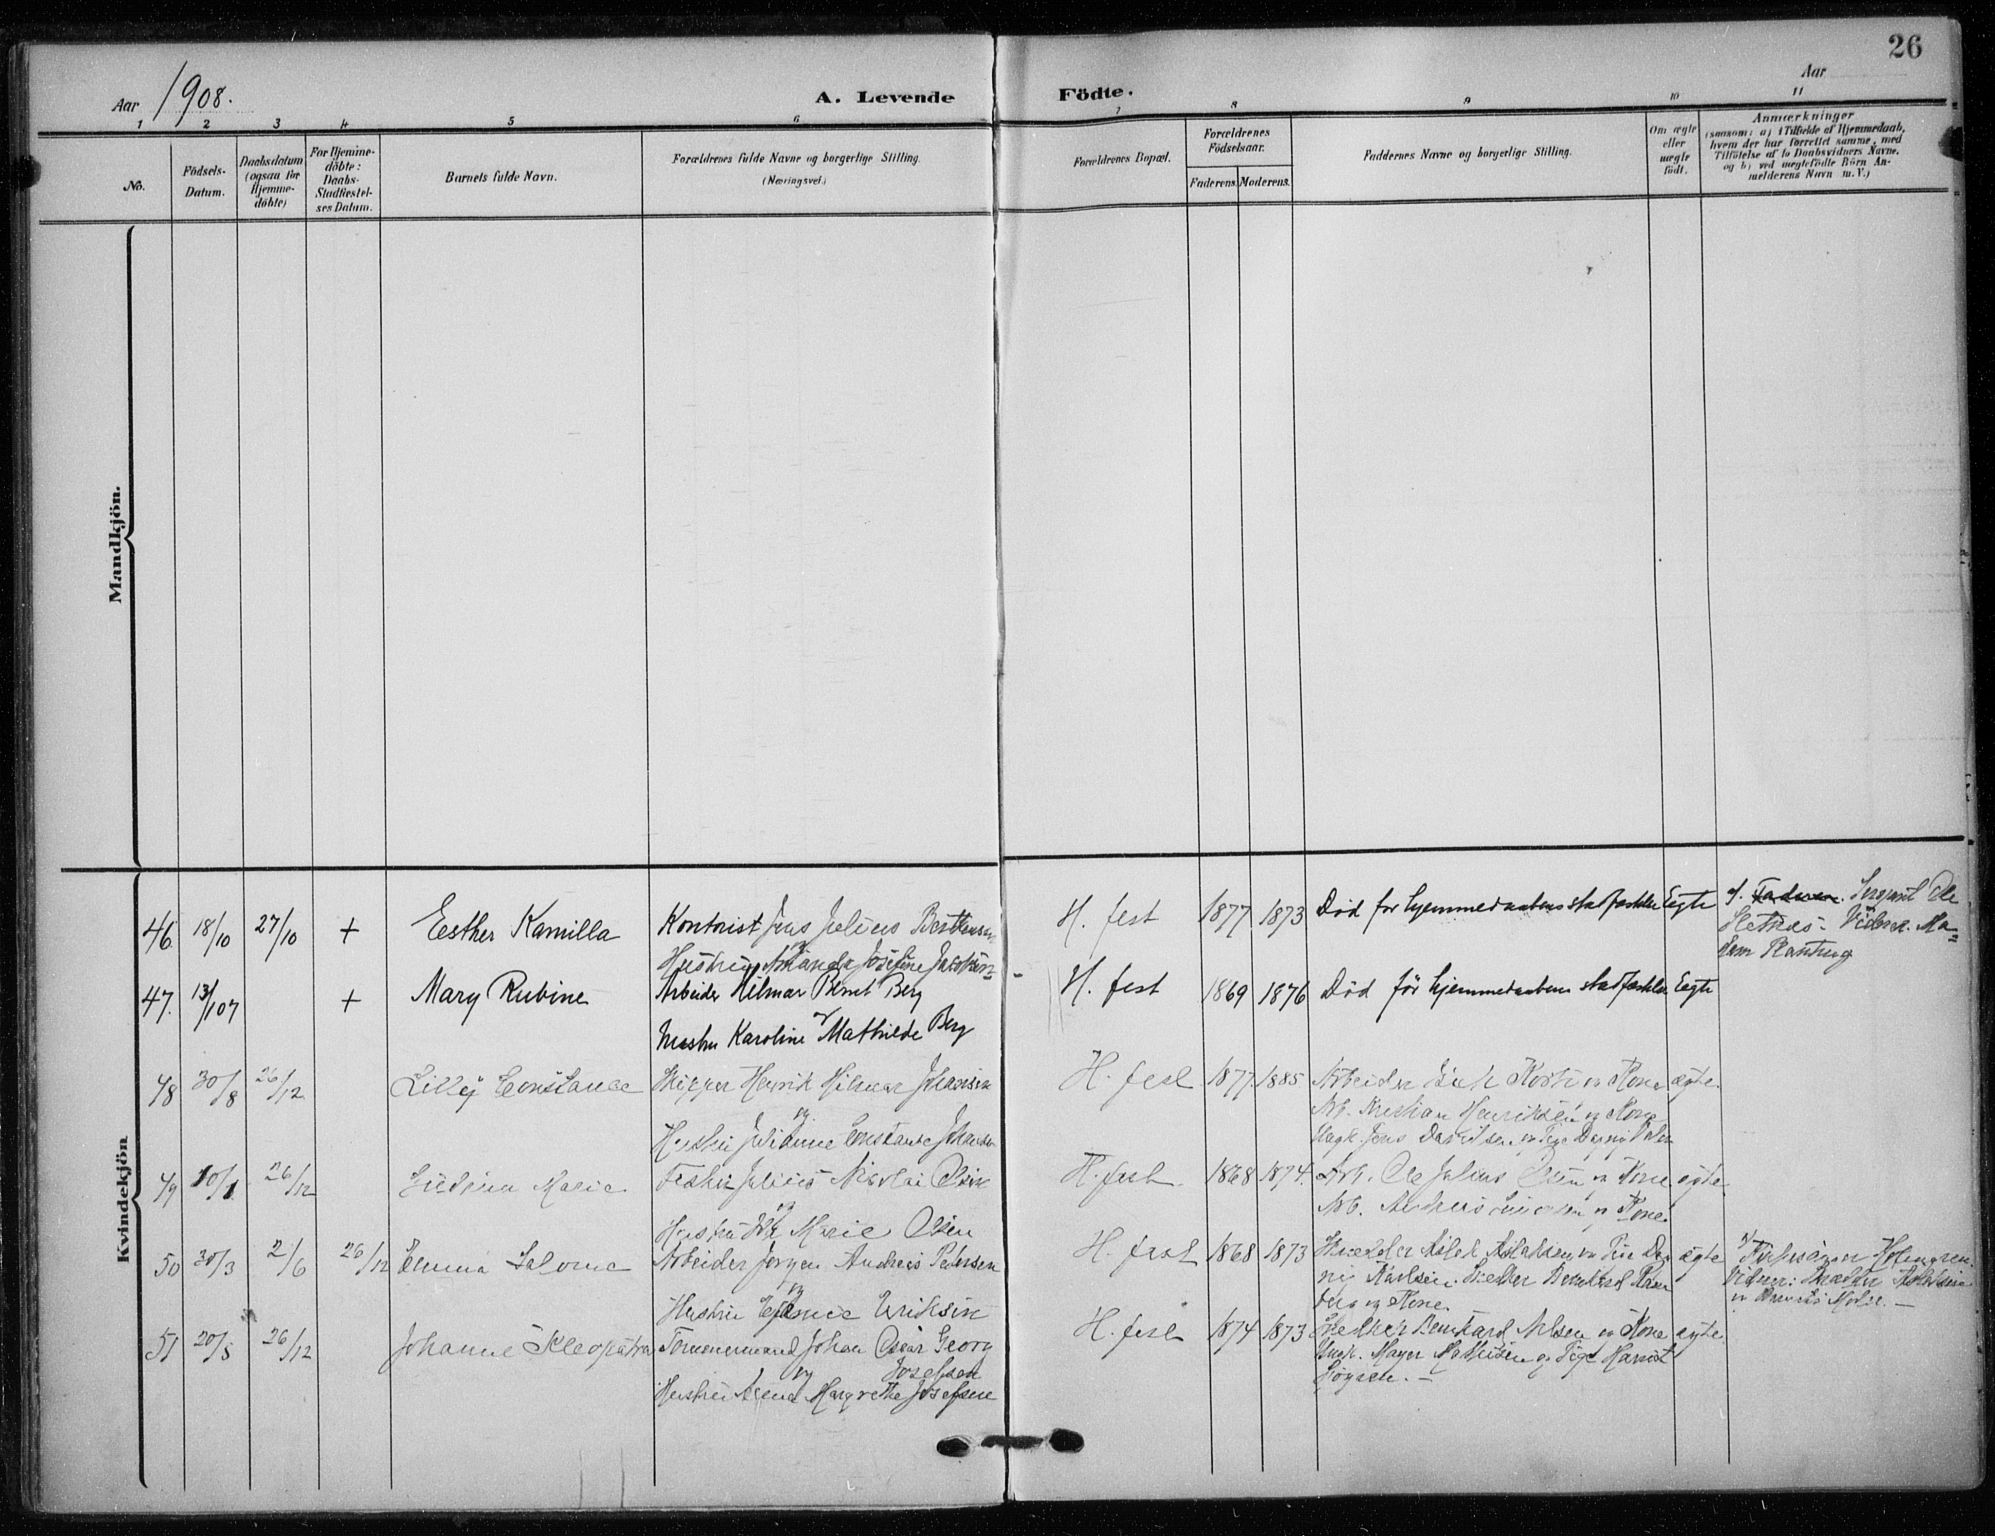 26
Aar 1908.
A. Levende
Födte.
Aar
1 2 3 4 5 6 7 8 9 10 11
No.
Födsels-
Datum.
Daabsdatum
(ogsaa for
Hjemme-
döbte)
For Hjemme-
döbte:
Daabs-
Stadfæstel-
ses Datum.
Barnets fulde Navn.
Forældrenes fulde Navne og borgerlige Stilling.
(Næringsvei.)
Forældrenes Bopæl.
Forældrenes
Födselsaar.
Faderens. Moderens.
Faddernes Navne og borgerlige Stilling.
Om ægte
eller
uægte
födt.
Anmærkninger
(saasom: a) i Tilfælde af Hjemmedaab,
hvem der har forrettet samme, med
Tilföielse af to Daabsvidners Navne,
og b) ved uægtefödte Börn An-
melderens Navn m. V.)
Mandkjön.
Kvindekjön
46 18/10 27/10 + Eesther Kamilla
Kontorist Jens Julius Berthensen
og
Hustru Amanda Josefine
H. fest 1877 1873 Död for hjemmedaabens stadfæstelse Egte
a/ Faderen. Sergeant Ole
Vidner. Ma=
dam
47. 13/107 + Mary Rubine
Arbeider Hilmar Bernt Berg
og
Hustru Karoline Mathilde Berg
H. fest 1869 1876 Död för hjemmedaabens stadfæstelse Egte
48 30/8 26/12 Lilly Constance
Skipper Henrik Hilmar Johansen
og
Hustru Julianne Constance Johansen
H. fest 1877 1885 Arbeider og Kone ægte.
Arb. Kristian Henriksen og Kone
Ungk. Jens Davidsen og Pige Dagny
49 10/1 26/12 Gudrun Marie
Fisker Julius Nikolai Olsen
og
Hustru Ida Marie Olsen
H. fest. 1868 1874. Arb. Ole Julius Olsen og Kone ægte
Arb. Andreas og Kone.
50 30/3 2/6 26/12 Emma Salome
Arbeider Jörgen Andreas Petersen
og
Hustru Eriksen
H. fest 1868 1873 Aslak Aslaksen og Pige Dag ægte
ny Karlsen.
og Kone.
a/ Kirkesanger Holmgren.
Vidner:
og
51 20/5 26/12 Johanne Kleopatra
Tömmermand Johan Oscar Georg
og Josefsen
Hustru Anna Margrethe Josefsen
H. fest 1874 1873 Bernhard Nilsen og Kone ægte
Ungk. Mathisen og Pige